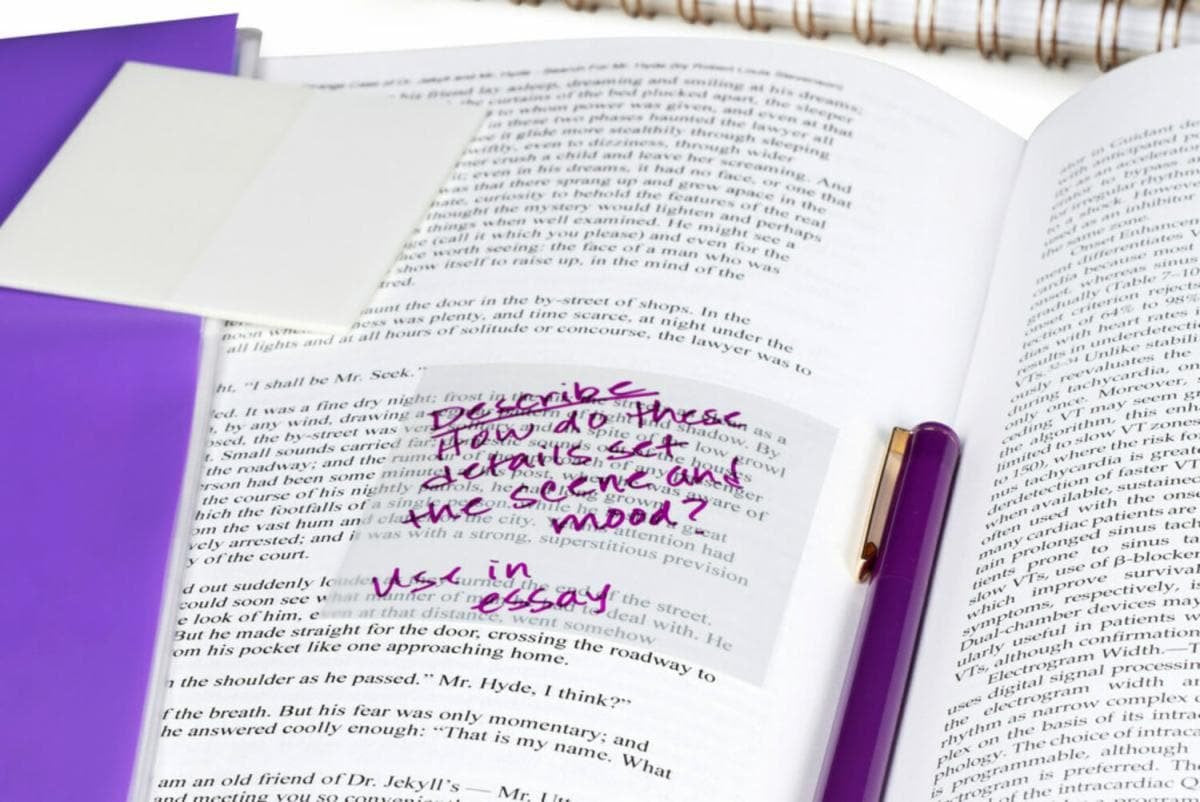 ange Case of Dr. Jekyll and Mr. Hyde - Search For Mr. Hyde (by Robert Louis Stevenson)
his friend lay asleep, dreaming and smiling at his dreams;
the curtains of the bed plucked apart, the sleeper
to whom power was given, and even at that
in these two phases haunted the lawyer all
ee it glide more stealthily through sleeping
wiftly, even to dizziness, through wider
ner crush a child and leave her screaming. And
it; even in his dreams, it had no face, or one that
was that there sprang up and grew apace in the
nate, curiosity to behold the features of the real
thought the mystery would lighten and perhaps
things when well examined. He might see a
ge (call it which you please) and even for the
ace worth seeing: the face of a man who was
show itself to raise up, in the mind of the
red.
aunt the door in the by-street of shops. In the
noon when ness was plenty, and time scarce, at night under the
all lights and at all hours of solitude or concourse, the lawyer was to
ht. "I shall be Mr. Seek."
Describe
How do these
details set
the scene and
mood?
Use in
essay
led. It was a fine dry night; frost in the as a
, by any wind, drawing a of and shadow. By
osed, the by-street was very and spite of the low growl
t. Small sounds carried far; domestic sounds
the roadway; and the rumor of the approach of any passenger
rson had been some minutes post, when was aware of
the course of his nightly patrols, he grown
hich the footfalls of a single person, while he great
om the vast hum and the city. attention had
vely arrested; and it was with a strong, superstitious prevision
y of the court.
d out suddenly louder as turned the end of the street.
could soon see what manner of deal with. He
e look of him, even at that distance, went somehow
But he made straight for the door, crossing the roadway to
om his pocket like one approaching home.
n the shoulder as he passed." Mr. Hyde, I think?"
f the breath. But his fear was only momentary; and
he answered coolly enough: "That is my name. What
am an old friend of Dr. Jekyll's — Mr. Utt
and meeting you so convenien
ator in Guidant de
with anticipated p
fy as an accelerato
tor to bypass a
irregular rhythm
to a shock. Howev
used as an inhibitor
the same zone.
Onset Enhancer
ment differentiates V
cardia because most
onset, whereas sinus
gradually (Table 7–10
onset criterion reject
tection of 64% to 98%
dias with heart rates
results in underdetecti
VTs. Unlike stabili
ously reevaluates the
during tachycardia, on
only once. Moreover,
ceding VT may seem g
the algorithm, this enh
limited to slow VT zones
to 150), where the risk fo
nus tachycardia is greate
derdetection of faster VT
when available, sustained
often used with the onse
many cardiac patients are
tain prolonged sinus tach
tients prone to sinus tac
slow VTs, use of β-blocke
which improve survival
symptoms, respectively, is
Dual-chamber devices may
ularly useful in patients w
VTs, although confirmation
Electrogram Width.—T
uses digital signal processin
the electrogram width an
rhythm as narrow complex
plex on the basis of its intra
phology. The choice of intraca
is programmable, although
togram is preferred. The
of the intracardiac Q